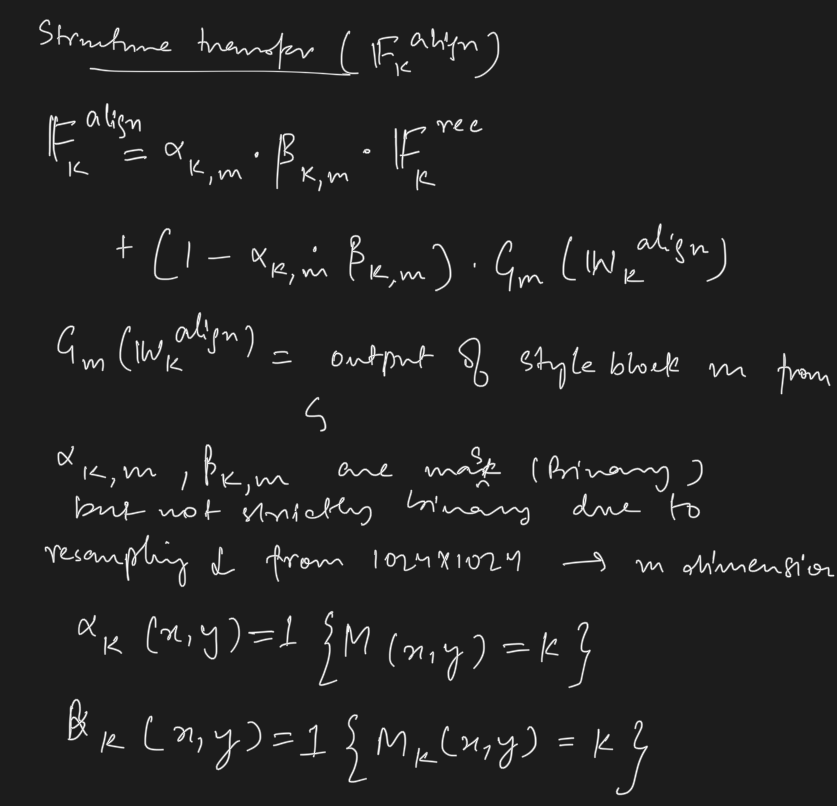 Structure transfer (𝔽ₖ^align)
𝔽ₖ^align = α_{K,m} · β_{K,m} · 𝔽ₖ^rec
+ (1 - α_{K,m} · β_{K,m}) · G_m (𝕎ₖ^align)
G_m (𝕎ₖ^align) = output of style block m from
G
α_{K,m} , β_{K,m} are mask (Binary)
but not strictly binary due to
resampling & from 1024x1024 → m dimension
α_K (x,y) = 1 {M (x,y) = K}
β_K (x,y) = 1 {M_K (x,y) = K}